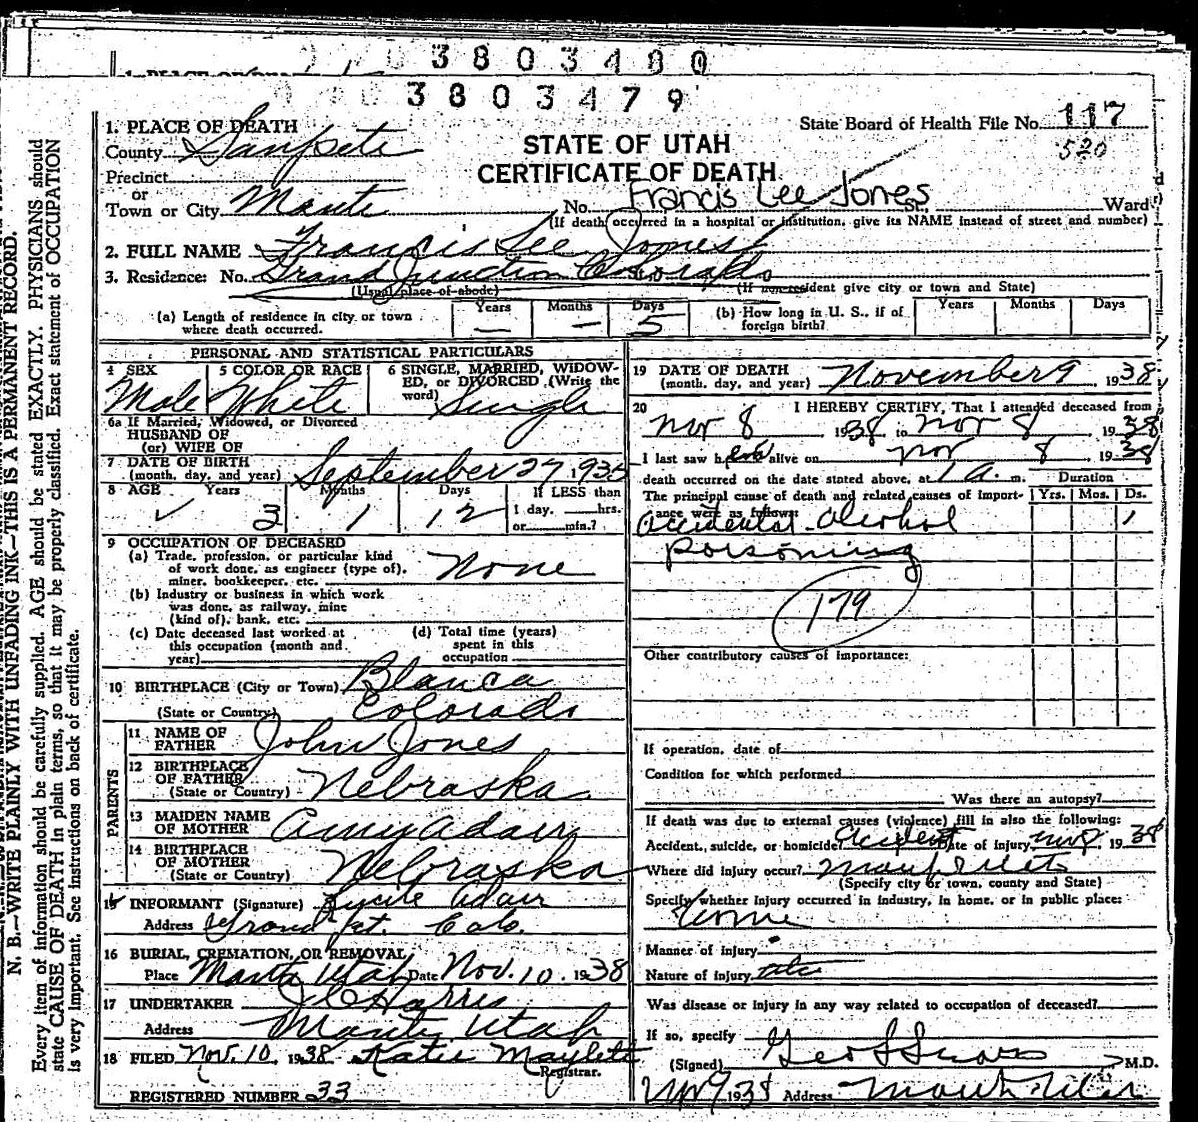 3803480
3803479
1. PLACE OF DEATH
County Sanpete
STATE OF UTAH
CERTIFICATE OF DEATH
State Board of Health File No. 117
520
Precinct
or
Town or City Manti
No. Francis Lee Jones St. Ward
(If death occurred in a hospital or institution, give its NAME instead of street and number)
2. FULL NAME Francis Lee Jones
3. Residence: No. Grand Junction Colorado
(Usual place of abode) (If non-resident give city or town and State)
(a) Length of residence in city or town where death occurred. Years — Months — Days 5
(b) How long in U. S., if of foreign birth? Years Months Days
PERSONAL AND STATISTICAL PARTICULARS
4 SEX Male
5 COLOR OR RACE White
6 SINGLE, MARRIED, WIDOWED, or DIVORCED (Write the word) Single
6a If Married, Widowed, or Divorced
HUSBAND OF
(or) WIFE OF
7 DATE OF BIRTH
(month, day, and year) September 27, 1935
8 AGE Years 3 Months 1 Days 12 If LESS than
1 day. hrs.
or min.?
9 OCCUPATION OF DECEASED
(a) Trade, profession, or particular kind
of work done, as engineer (type of),
miner, bookkeeper, etc. None
(b) Industry or business in which work
was done, as railway, mine
(kind of), bank, etc.
(c) Date deceased last worked at
this occupation (month and
year)
(d) Total time (years)
spent in this
occupation
10 BIRTHPLACE (City or Town) Blanca
(State or Country) Colorado
PARENTS
11 NAME OF
FATHER John Jones
12 BIRTHPLACE
OF FATHER
(State or Country) Nebraska
13 MAIDEN NAME
OF MOTHER Amy Adair
14 BIRTHPLACE
OF MOTHER
(State or Country) Nebraska
15 INFORMANT (Signature) Lucile Adair
Address Grand Jct. Colo.
16 BURIAL, CREMATION, OR REMOVAL
Place Manti Utah Date Nov. 10, 1938
17 UNDERTAKER Harris
Address Manti, Utah
18 FILED Nov. 10, 1938 Katie Maylett
Registrar.
REGISTERED NUMBER 33
19 DATE OF DEATH
(month, day, and year) November 9 1938
20 I HEREBY CERTIFY, That I attended deceased from
Nov 8 1938 to Nov 8 1938
I last saw h alive on Nov 8 1938
death occurred on the date stated above, at 1 a. m. Duration
The principal cause of death and related causes of importance were as follows: Yrs. Mos. Ds.
Accidental alcohol 1
poisoning
179
Other contributory causes of importance:
If operation, date of
Condition for which performed
Was there an autopsy?
If death was due to external causes (violence) fill in also the following:
Accident, suicide, or homicide? Accident Date of injury Nov 8 1938
Where did injury occur? Manti Utah
(Specify city or town, county and State)
Specify whether injury occurred in industry, in home, or in public place:
Home
Manner of injury
Nature of injury
Was disease or injury in any way related to occupation of deceased?
If so, specify
(Signed) M.D.
1938 Address Manti Utah
N. B.—WRITE PLAINLY WITH UNFADING INK—THIS IS A PERMANENT RECORD.
Every item of information should be carefully supplied. AGE should be stated EXACTLY. PHYSICIANS should
state CAUSE OF DEATH in plain terms, so that it may be properly classified. Exact statement of OCCUPATION
is very important. See instructions on back of certificate.